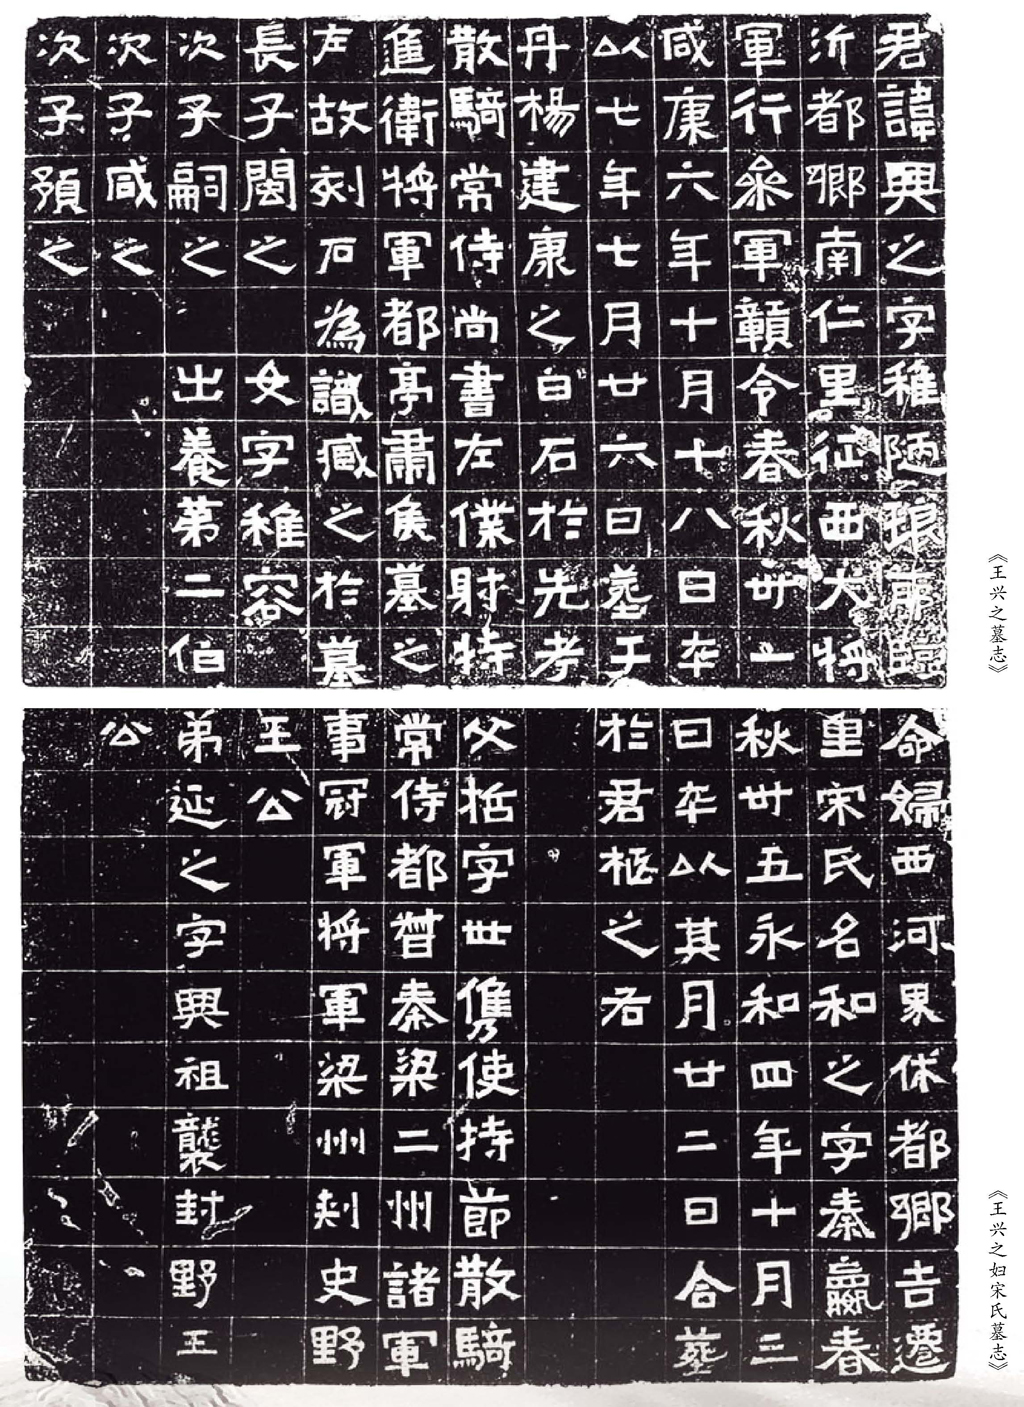 君諱興之字稚陋琅耶臨
沂都鄉南仁里征西大將
軍行參軍贛令春秋卅一
咸康六年十月十八日卒
以七年七月廿六日塟于
丹楊建康之白石於先考
散騎常侍尚書左僕射特
進衛將軍都亭肅侯墓之
左故刻石為識臧之於墓
長子閩之 女字稚容
次子嗣之 出養第二伯
次子咸之
次子預之
《王兴之墓志》
命婦西河界休都鄉吉遷
里宋氏名和之字秦嬴春
秋卅五永和四年十月三
日卒以其月廿二日合塟
於君柩之右
父哲字世儁使持節散騎
常侍都督秦梁二州諸軍
事冠軍將軍梁州刺史野
王公
弟延之字興祖襲封野王
公
《王兴之妇宋氏墓志》